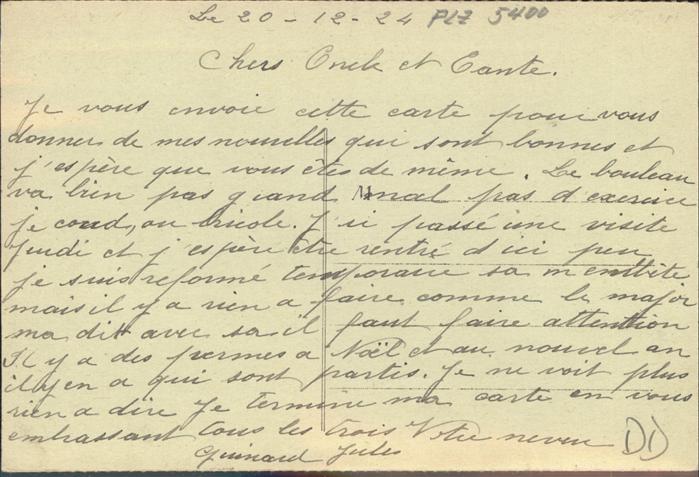 Le 20-12-24 PLZ 5400
Chers Oncle et Tante.
Je vous envoie cette carte pour vous
donner de mes nouvelles qui sont bonnes et
j'espère que vous êtes de même. Le bouleau
va bien pas grand mal pas d'exercice
je coud, ou bricole. J'ai passé une visite
Jeudi et j'espère être rentré d'ici peu
je suis reformé temporaire sa m'embite
mais il y a rien a faire comme le major
ma dit avec sa il faut faire attention
Il y a des permes a Noël et au nouvel an
il y en a qui sont partis. Je ne voit plus
rien a dire Je termine ma carte en vous
embrassant tous les trois Votre neveu
Guinard Jules
DD